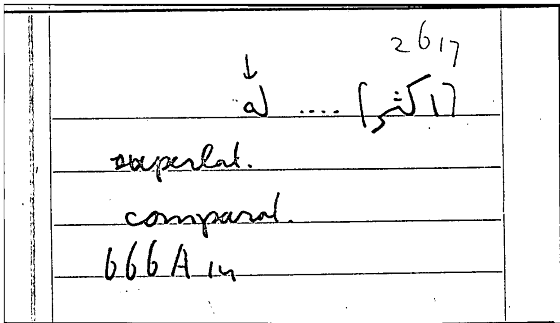 2617
[اكثر] .... له
superlat.
comparat.
666 A 14